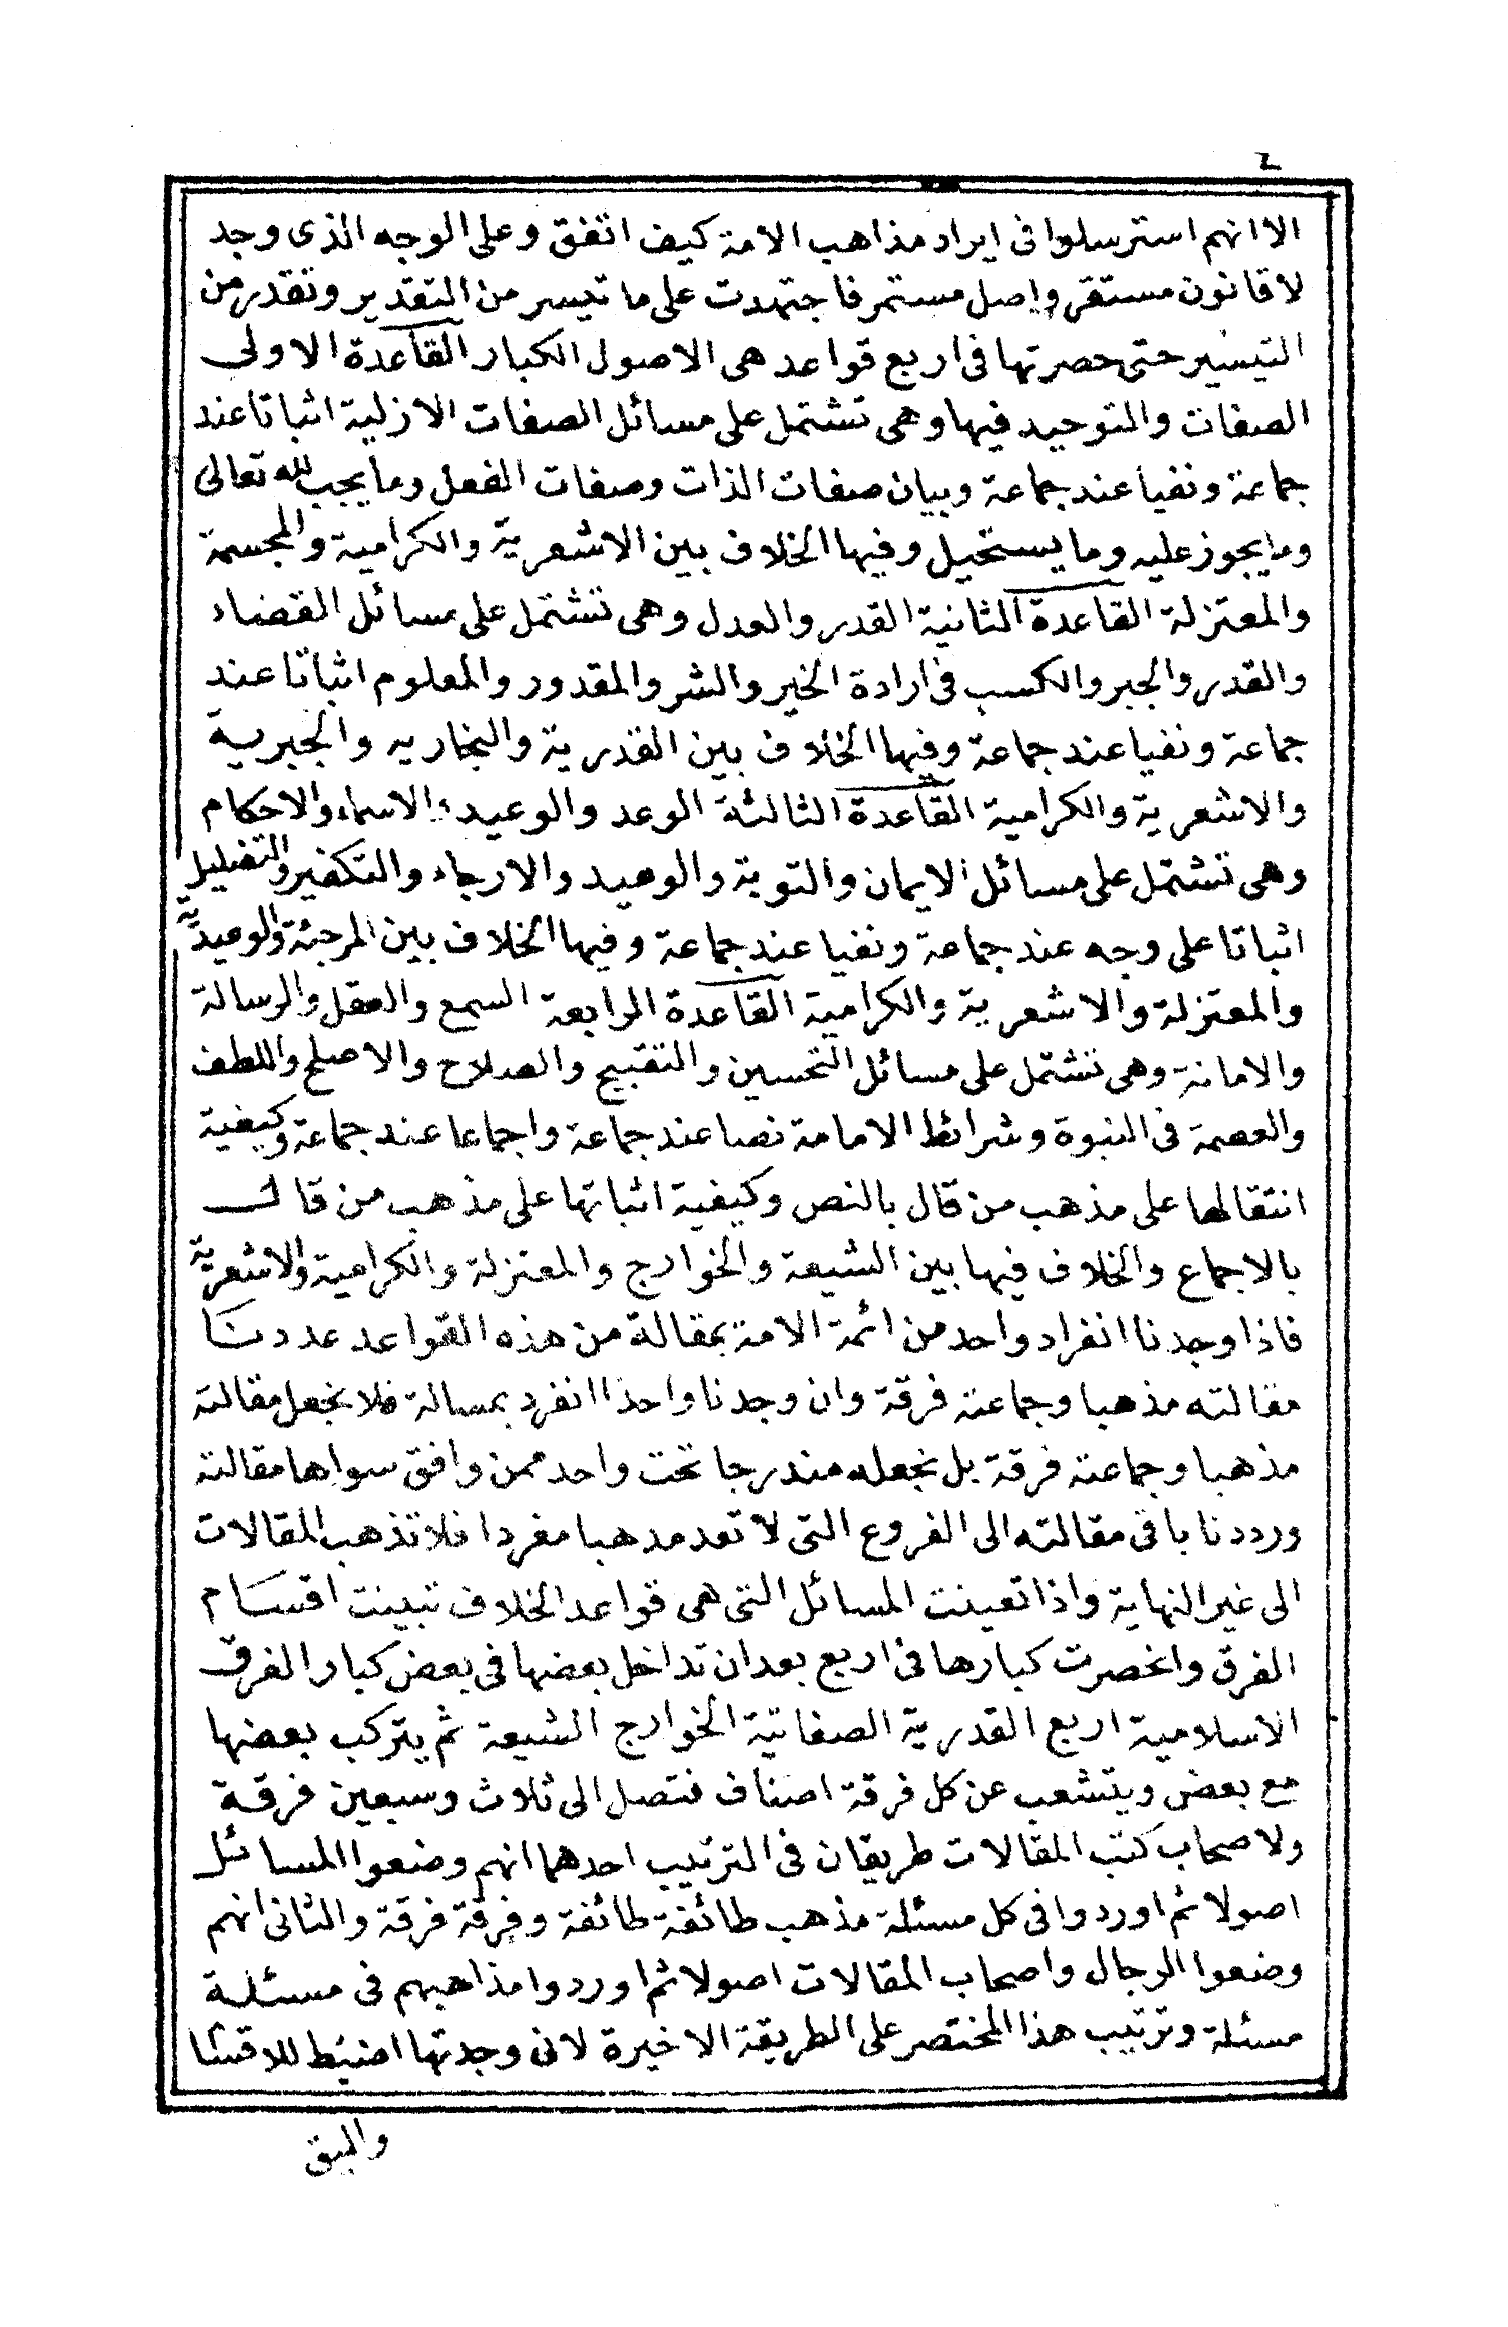 الا انهم استرسلوا فى ايراد مذاهب الامة كيف اتفق وعلى الوجه الذى وجد
لا قانون مستقر واصل مستمر فاجتهدت على ما تيسر من التقدير وتقدر من
التيسير حتى حصرتها فى اربع قواعد هى الاصول الكبار القاعدة الاولى
الصفات والتوحيد فيها وهى تشتمل على مسائل الصفات الازلية اثباتا عند
جماعة ونفيا عند جماعة وبيان صفات الذات وصفات الفعل وما يجب لله تعالى
وما يجوز عليه وما يستحيل وفيها الخلاف بين الاشعرية والكرامية والمجسمة
والمعتزلة القاعدة الثانية القدر والعدل وهى تشتمل على مسائل القضاء
والقدر والجبر والكسب فى ارادة الخير والشر والمقدور والمعلوم اثباتا عند
جماعة ونفيا عند جماعة وفيها الخلاف بين القدرية والنجاريه والجبرية
والاشعرية والكرامية القاعدة الثالثة الوعد والوعيد والاسماء والاحكام
وهى تشتمل على مسائل الايمان والتوبة والوعيد والارجاء والتكفير والتضليل
اثباتا على وجه عند جماعة ونفيا عند جماعة وفيها الخلاف بين المرجئة والوعيدية
والمعتزلة والاشعرية والكرامية القاعدة الرابعة السمع والعقل والرسالة
والامانة وهى تشتمل على مسائل التحسين والتقبيح والصلاح والاصلح واللطف
والعصمة فى النبوة وشرائط الامامة نصا عند جماعة واجماعا عند جماعة وكيفية
انتقالها على مذهب من قال بالنص وكيفية اثباتها على مذهب من قال
بالاجماع والخلاف فيها بين الشيعة والخوارج والمعتزلة والكرامية والاشعرية
فاذا وجدنا انفراد واحد من ائمة الامة بمقالة من هذه القواعد عددنا
مقالته مذهبا وجماعته فرقة وان وجدنا واحدا انفرد بمسالة فلا نجعل مقالته
مذهبا وجماعته فرقة بل نجعله مندرجا تحت واحد ممن وافق سواها مقالته
ورددنا باقى مقالته الى الفروع التى لا تعد مذهبا مفردا فلا تذهب المقالات
الى غير النهاية واذا تعينت المسائل التى هى قواعد الخلاف تبينت اقسام
الفرق وانحصرت كبارها فى اربع بعد ان تداخل بعضها فى بعض كبار الفرق
الاسلامية اربع القدرية الصفاتية الخوارج الشيعة ثم يتركب بعضها
مع بعض ويتشعب عن كل فرقة اصناف فتصل الى ثلاث وسبعين فرقة
ولاصحاب كتب المقالات طريقان فى الترتيب احدهما انهم وضعوا المسائل
اصولا ثم اوردوا فى كل مسئلة مذهب طائفة طائفة وفرقة فرقة والثانى انهم
وضعوا الرجال واصحاب المقالات اصولا ثم اوردوا مذاهبهم فى مسئلة
مسئلة وترتيب هذا المختصر على الطريقة الاخيرة لانى وجدتها اضبط للاقسا
واليق